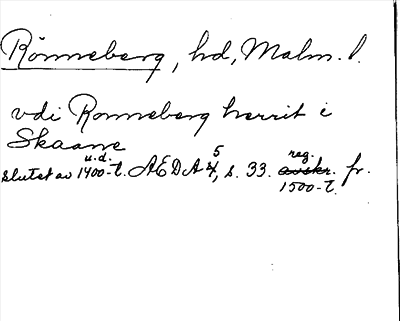 Rönneberg, hd, Malm. l.
vdi Ronneberg herrit i
Skaane
u.d. 5 reg.
slutet av 1400-t. AEDA 4, s. 33. avskr. fr.
1500-t.